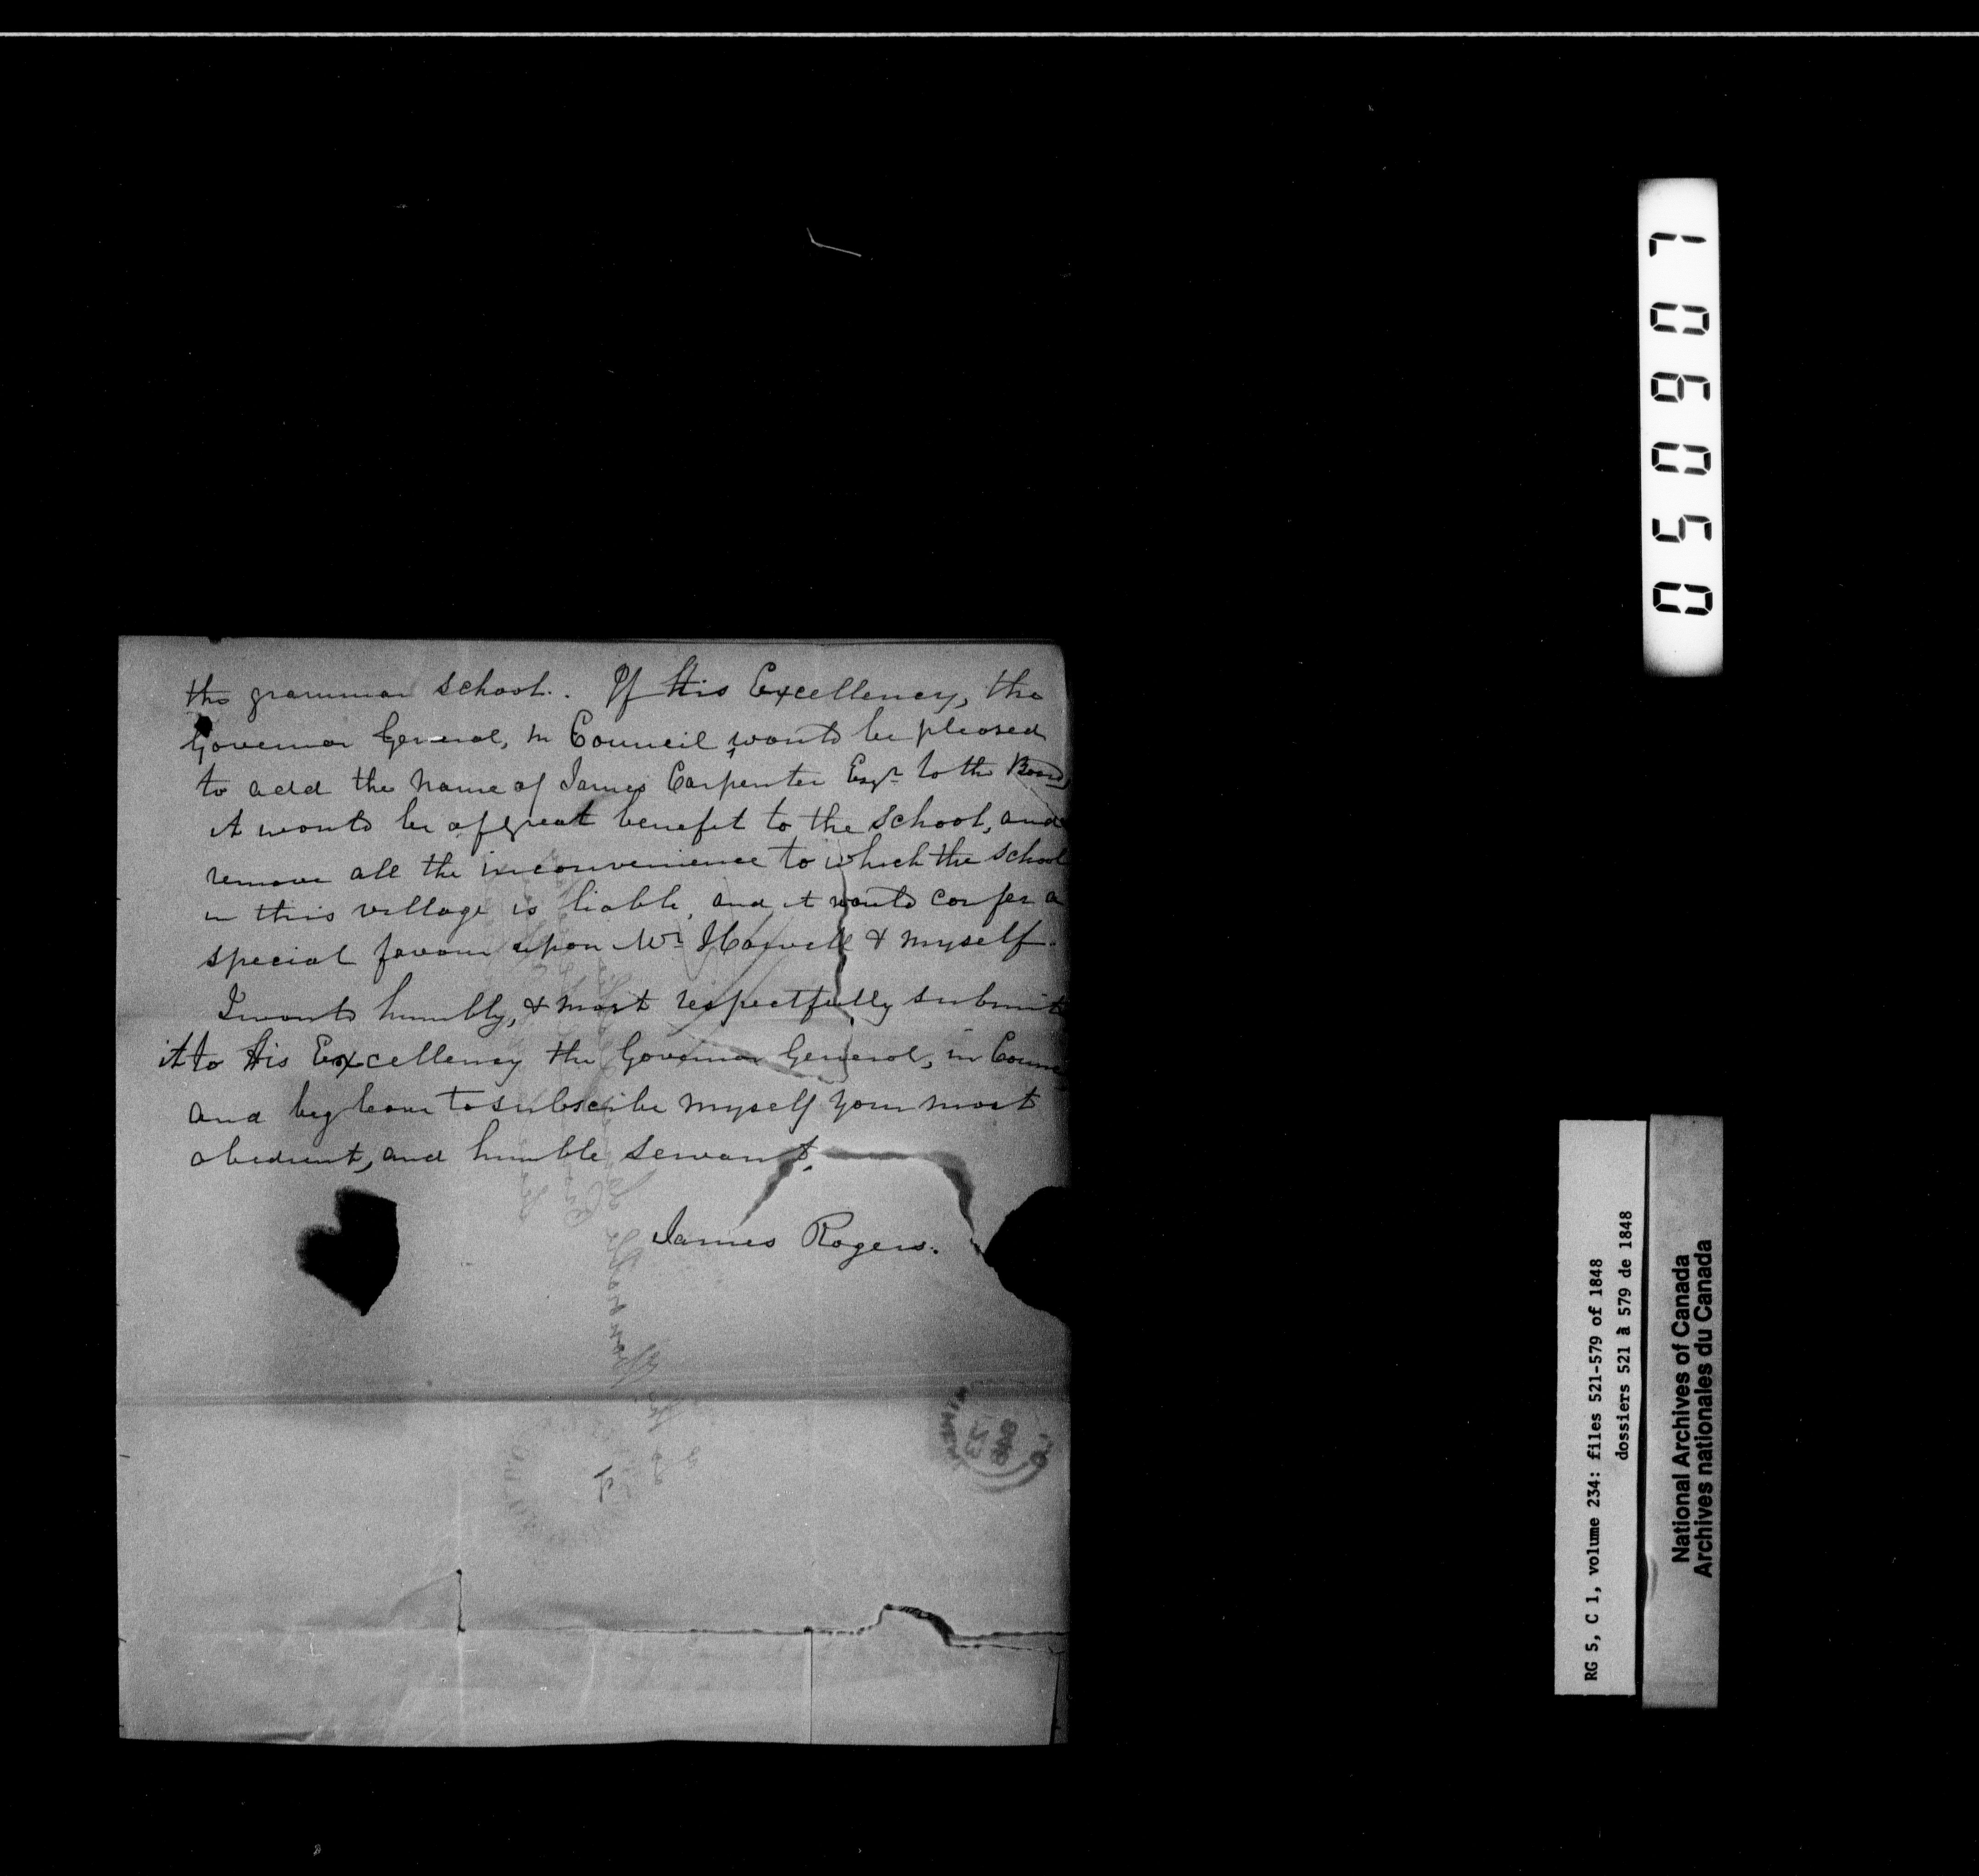 the grammar school. If His Excellency, the
Governor General, in Council would be pleased
to add the name of James Carpenter Esqr to the Board,
it would be of great benefit to the school, and
remove all the inconvenience to which the school
in this village is liable, and it would confer a
special favour upon Mr & myself.
I would humbly, & most respectfully submit
it to His Excellency the Governor General, in Counc
and beg leave to subscribe myself your most
obedient, and humble servant,
James Rogers.
050607
RG 5, C 1, volume 234: files 521-579 of 1848
dossiers 521 à 579 de 1848
National Archives of Canada
Archives nationales du Canada